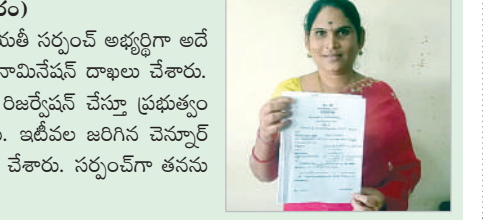 రం)
యతీ సర్పంచ్ అభ్యర్థిగా అదే
నామినేషన్ దాఖలు చేశారు.
రిజర్వేషన్ చేస్తూ ప్రభుత్వం
. ఇటీవల జరిగిన చెన్నూర్
చేశారు. సర్పంచ్‌గా తనను